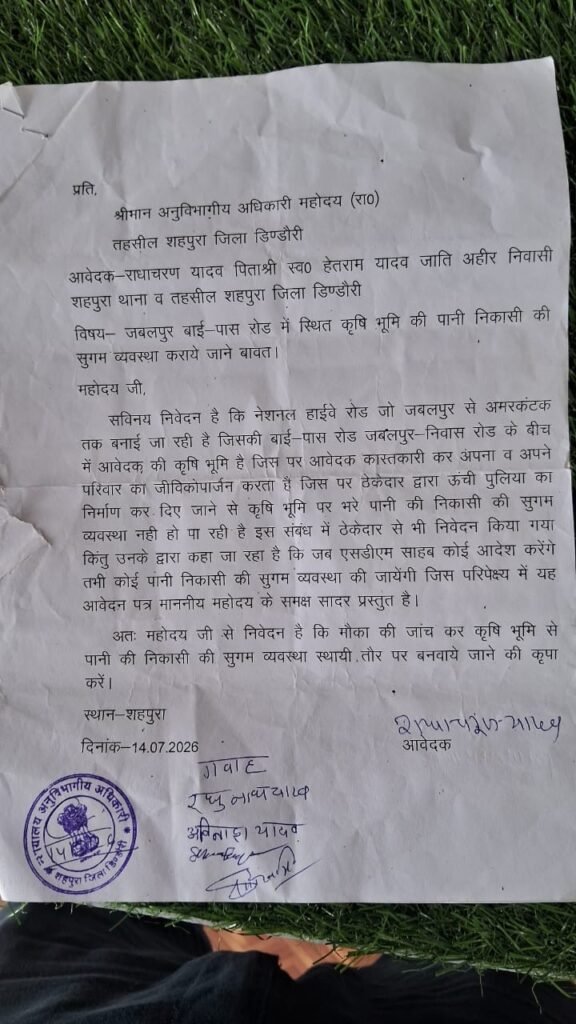 प्रति,
श्रीमान अनुविभागीय अधिकारी महोदय (रा0)
तहसील शहपुरा जिला डिण्डौरी
आवेदक–राधाचरण यादव पिताश्री स्व0 हेतराम यादव जाति अहीर निवासी
शहपुरा थाना व तहसील शहपुरा जिला डिण्डौरी
विषय– जबलपुर बाई–पास रोड में स्थित कृषि भूमि की पानी निकासी की
सुगम व्यवस्था कराये जाने बावत।
महोदय जी,
सविनय निवेदन है कि नेशनल हाईवे रोड जो जबलपुर से अमरकंटक
तक बनाई जा रही है जिसकी बाई–पास रोड जबलपुर–निवास रोड के बीच
में आवेदक की कृषि भूमि है जिस पर आवेदक कास्तकारी कर अपना व अपने
परिवार का जीविकोपार्जन करता है जिस पर ठेकेदार द्वारा ऊंची पुलिया का
निर्माण कर दिए जाने से कृषि भूमि पर भरे पानी की निकासी की सुगम
व्यवस्था नही हो पा रही है इस संबंध में ठेकेदार से भी निवेदन किया गया
किंतु उनके द्वारा कहा जा रहा है कि जब एसडीएम साहब कोई आदेश करेंगे
तभी कोई पानी निकासी की सुगम व्यवस्था की जायेंगी जिस परिपेक्ष्य में यह
आवेदन पत्र माननीय महोदय के समक्ष सादर प्रस्तुत है।
अतः महोदय जी से निवेदन है कि मौका की जांच कर कृषि भूमि से
पानी की निकासी की सुगम व्यवस्था स्थायी तौर पर बनवाये जाने की कृपा
करें।
स्थान–शहपुरा
राधाचरण यादव
दिनांक–14.07.2026
आवेदक
गवाह
रघुनाथ यादव
अविनाश यादव
कार्यालय अनुविभागीय अधिकारी
शहपुरा जिला डिण्डौरी